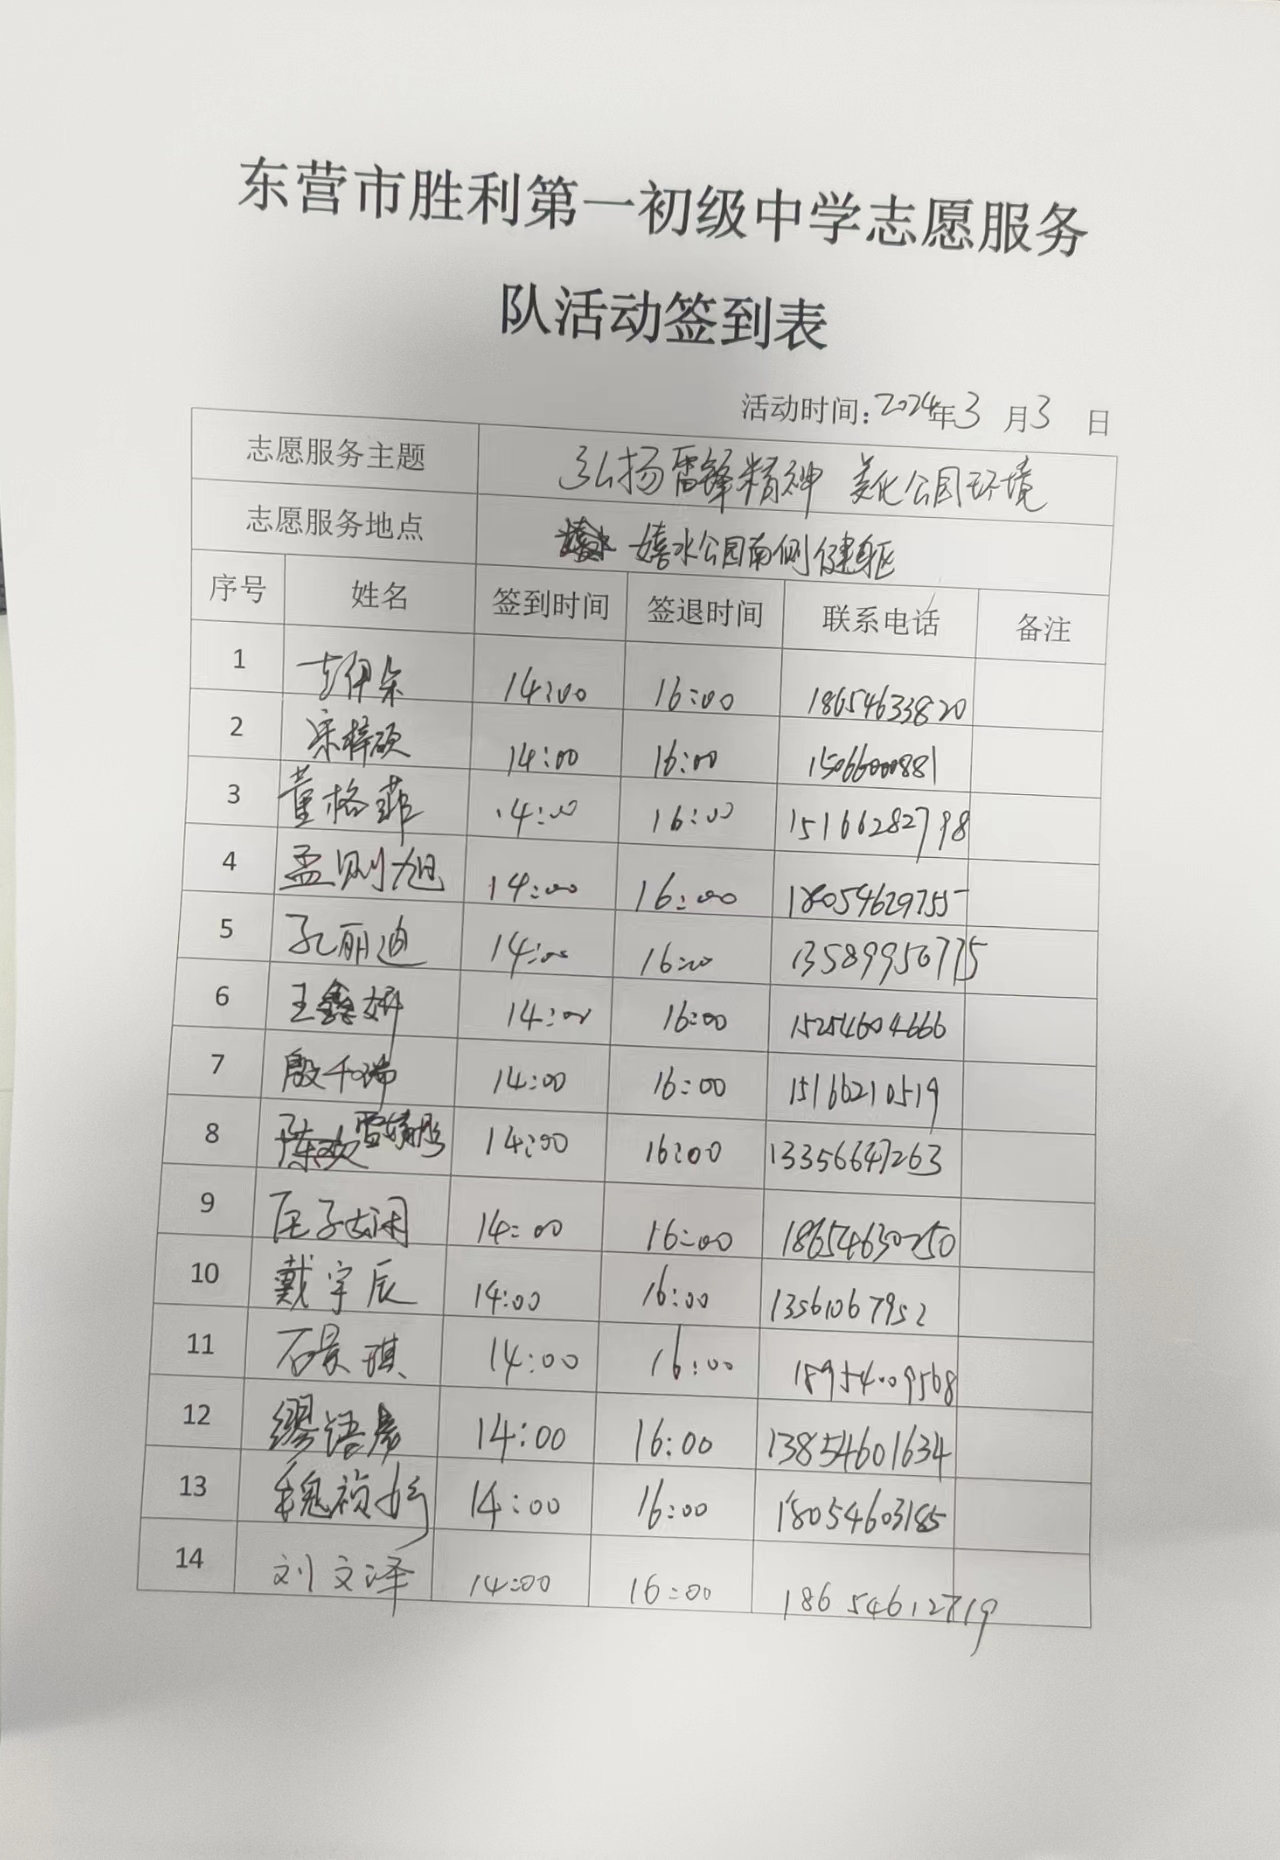 东营市胜利第一初级中学志愿服务
队活动签到表
活动时间:2024年3月3日
志愿服务主题 弘扬雷锋精神 美化公园环境
志愿服务地点 嬉水公园南侧健身区
序号 姓名 签到时间 签退时间 联系电话 备注
1 14:00 16:00 18654633820
2 宋梓硕 14:00 16:00 15066000881
3 董格菲 14:00 16:00 15166282798
4 孟则旭 14:00 16:00 18054629755
5 孔丽迪 14:00 16:00 13589956775
6 王鑫妍 14:00 16:00 15254604666
7 殷千瑞 14:00 16:00 15166210519
8 14:00 16:00 13356647263
9 14:00 16:00 18654630250
10 戴宇辰 14:00 16:00 13561067952
11 石景琪 14:00 16:00 18954009568
12 缪语宸 14:00 16:00 13854601634
13 魏祯 14:00 16:00 18054603185
14 刘文泽 14:00 16:00 18654612719